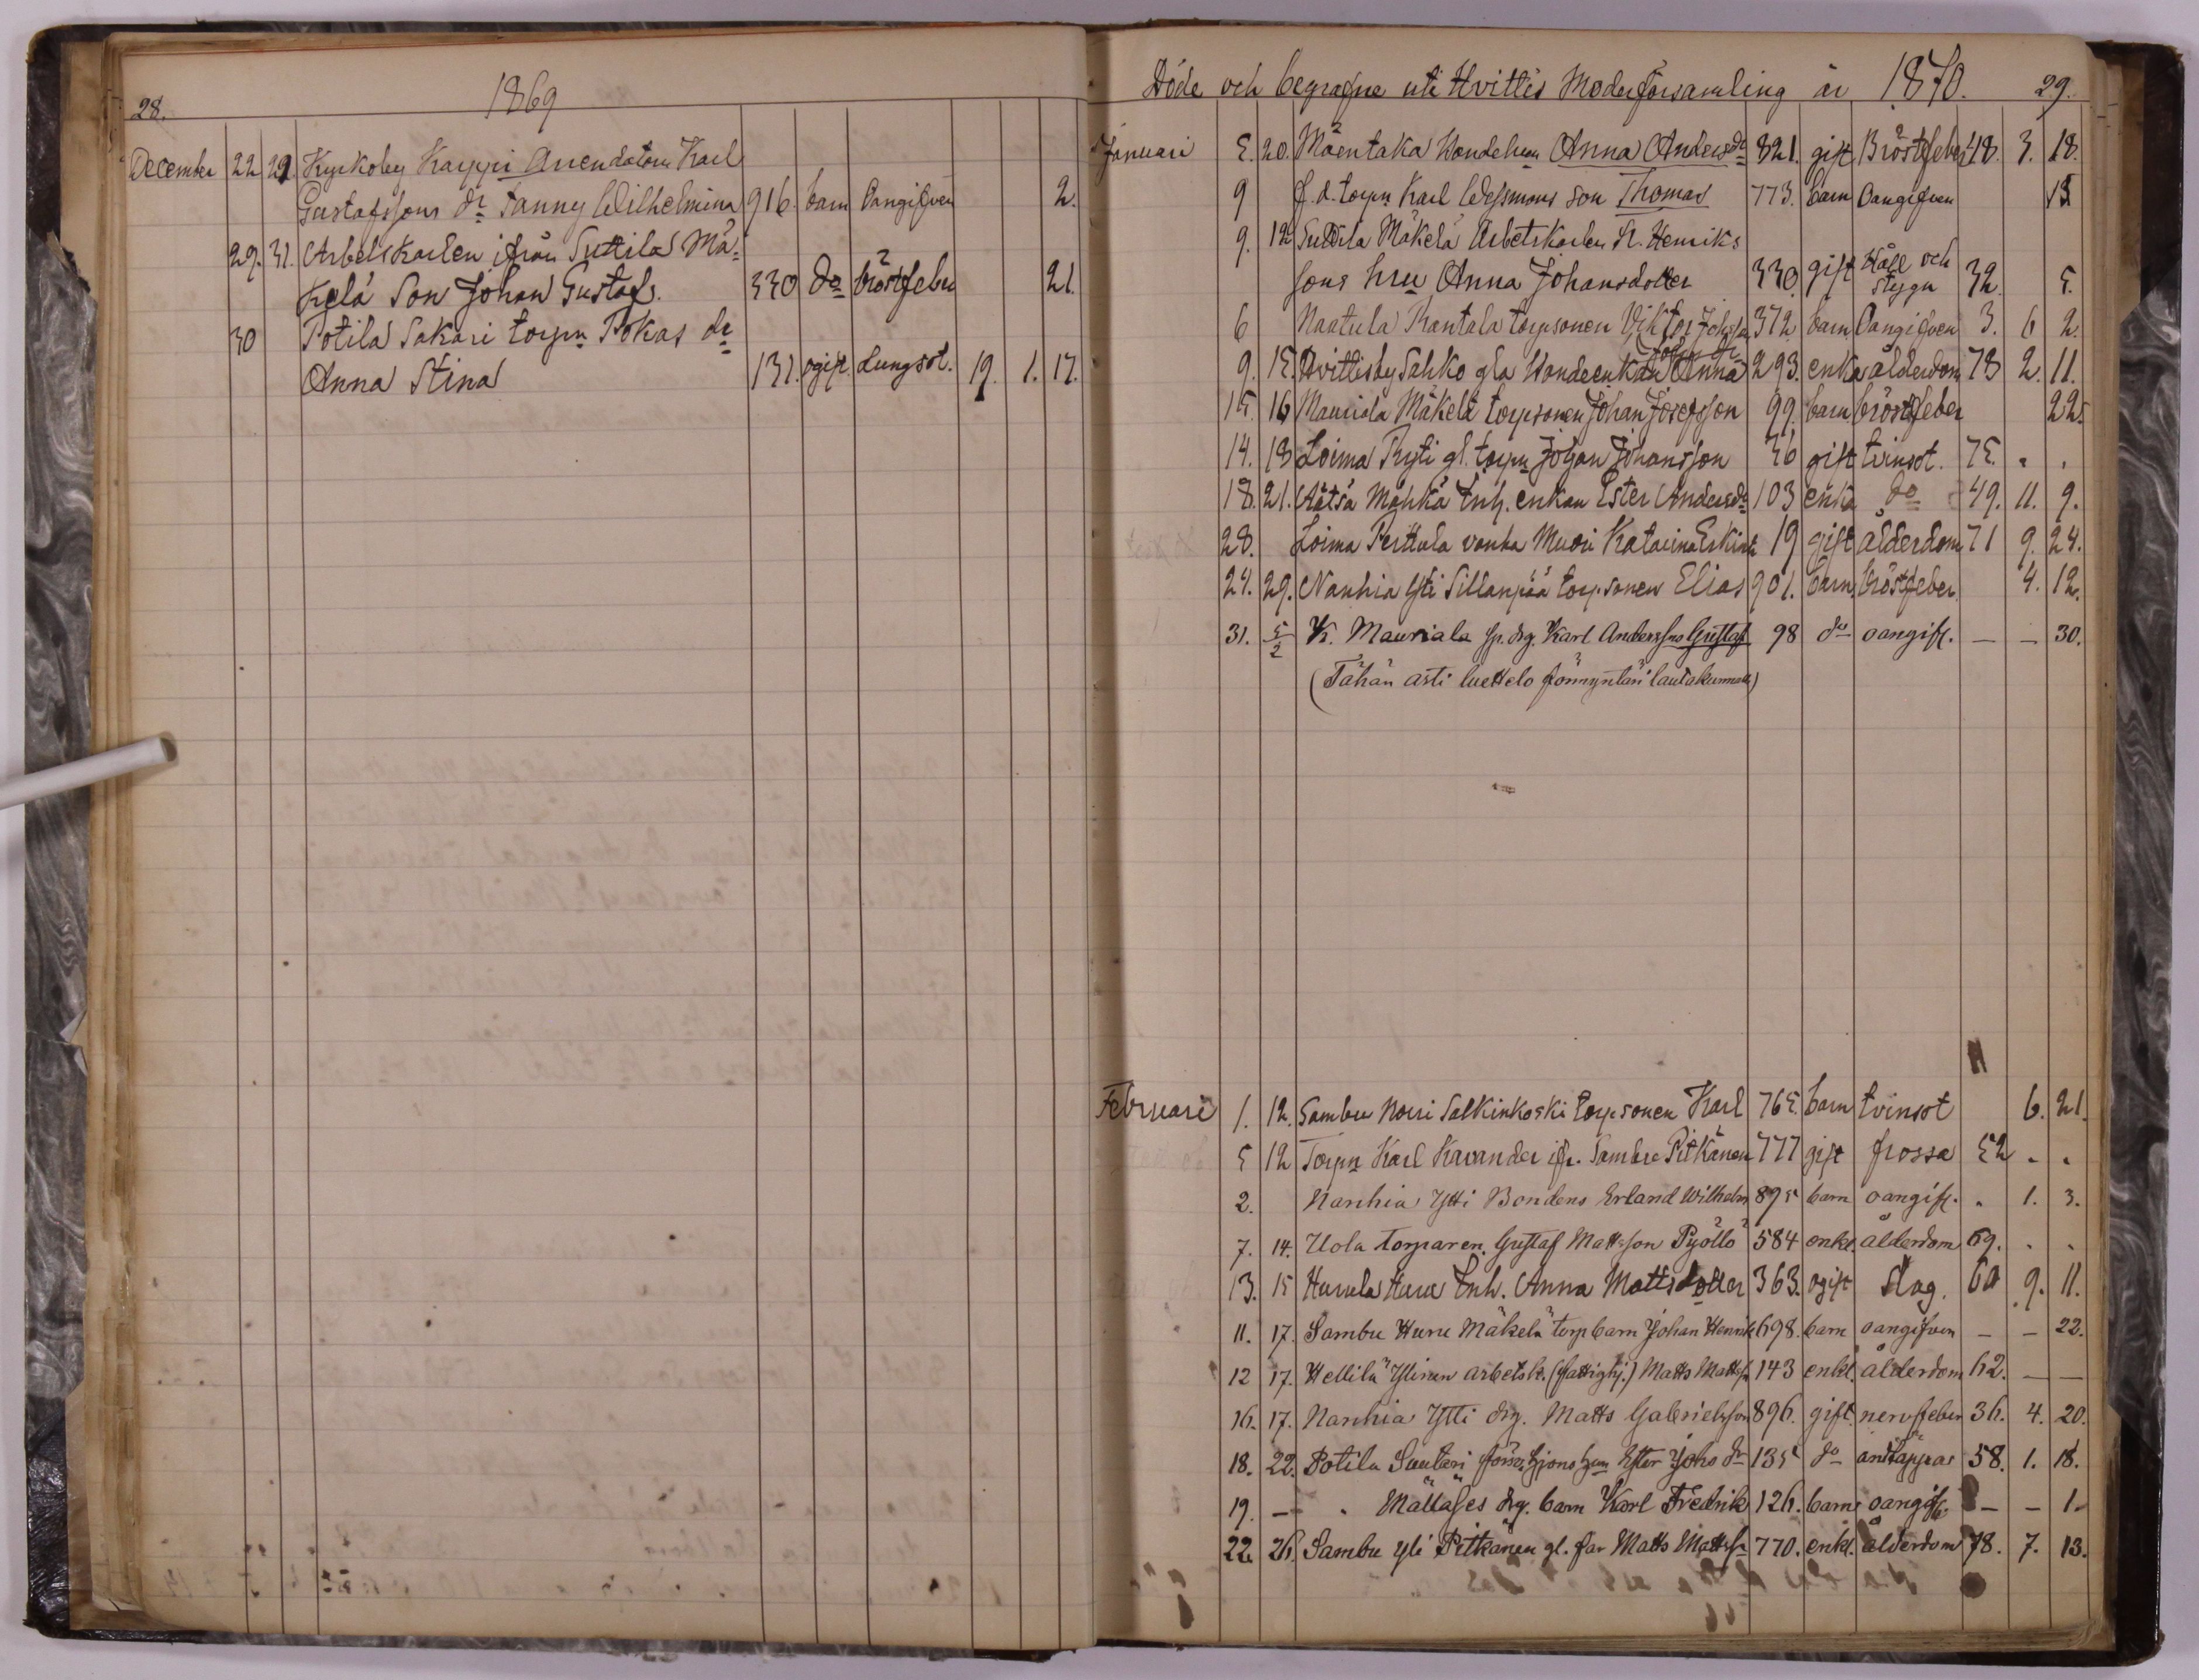 28.
1869
December 22 29. Kyrkoby Karppi Arrendatorn Karl
Gustafssons dr Fanny Wilhelmina 916. barn Oangifven 2.
29. 31. Arbetskarlen ifrån Suttila Mä=
kelä Son Johan Gustaf. 330 do bröstfeber 21.
30 Potila Sakari torpn Fokas dr
Anna Stina 131. ogift. Lungsot. 19. 1. 17.
Döde och begrafne uti Hvittis Moderförsamling år 1870. 29.
Januari 5. 20. Mäentaka Bondehun Anna Andersdr 821. gift Bröstfeber 48. 3. 18.
9 f.d. torpn Karl Wessmans son Thomas 773. barn Oangifven 15
9. 12 Suttila Mäkelä Arbetskarlen K. Henriks
sons hru Anna Johansdotter 330. gift Håll och stygn 32. 5.
6 Naatula Rantala torpsonen Viktor 372 barn Oangifven 3. 6 2.
9. 15. Hvittisby Sahko gla Bondeenkan Anna 293. enka ålderdom 73 2. 11.
15. 16 Mauriala Mäkelä torpsonen Johan Josefsson 99. barn bröstfeber 22.
14. 18 Loima Ryti gl. torpn Johan Johansson 36 gift tvinsot. 75. . .
18. 21. Äätsä Mähkä Inh. enkan Ester Andersdr 103 enka do 49. 11. 9.
28. Loima Perttula vanha Muori Katarina 19 gift ålderdom 71 9. 24.
24. 29. Nanhia Ytti Sillanpää torpsonen Elias 901. barn. bröstfeber. 4. 12.
31. 5/2 K. Mauriala sp. drg. Karl Anderssns Gustaf 98 do oangifv. — — 30.
(Tähän asti luettelo lautakunnalle)
Februari 1. 12. Sambu Norri Salkinkoski torpsonen Karl 765. barn tvinsot 6. 21.
5 12 Torpn Karl Kavander ifr. Sambu Pitkänen 777 gift frossa 52 . .
2. Nanhia Ytti Bondens Erland Wilhelm 895 barn oangifv. . 1. 3.
7. 14. Uola torparen Gustaf Mattsson Pyöllö 584 enkl. ålderdom 69. . .
13. 15 Hurula Huru Inh. Anna Mattsdotter 363. ogift Slag. 60 9. 11.
11. 17. Sambu Huru Mäkelä torpbarn Johan Henrik 698. barn oangifven — — 22.
12 17. Hellilä Ylinen arbetsk. (fattighj.) Matts Mattss. 143 enkl. ålderdom 62. — —
16. 17. Nanhia Ytti drg. Matts Gabrielsson 896. gift. nervfeber 36. 4. 20.
18. 22. Potila Suutari hjons hun Ester Johs dr 135 do andtäppa 58. 1. 18.
19. — . Mällases drg. barn Karl Fredrik 126. barn oangifv. — — 1.
22. 26. Sambu Yli Pitkänen gl. far Matts Mattss. 770. enkl. ålderdom 78. 7. 13.